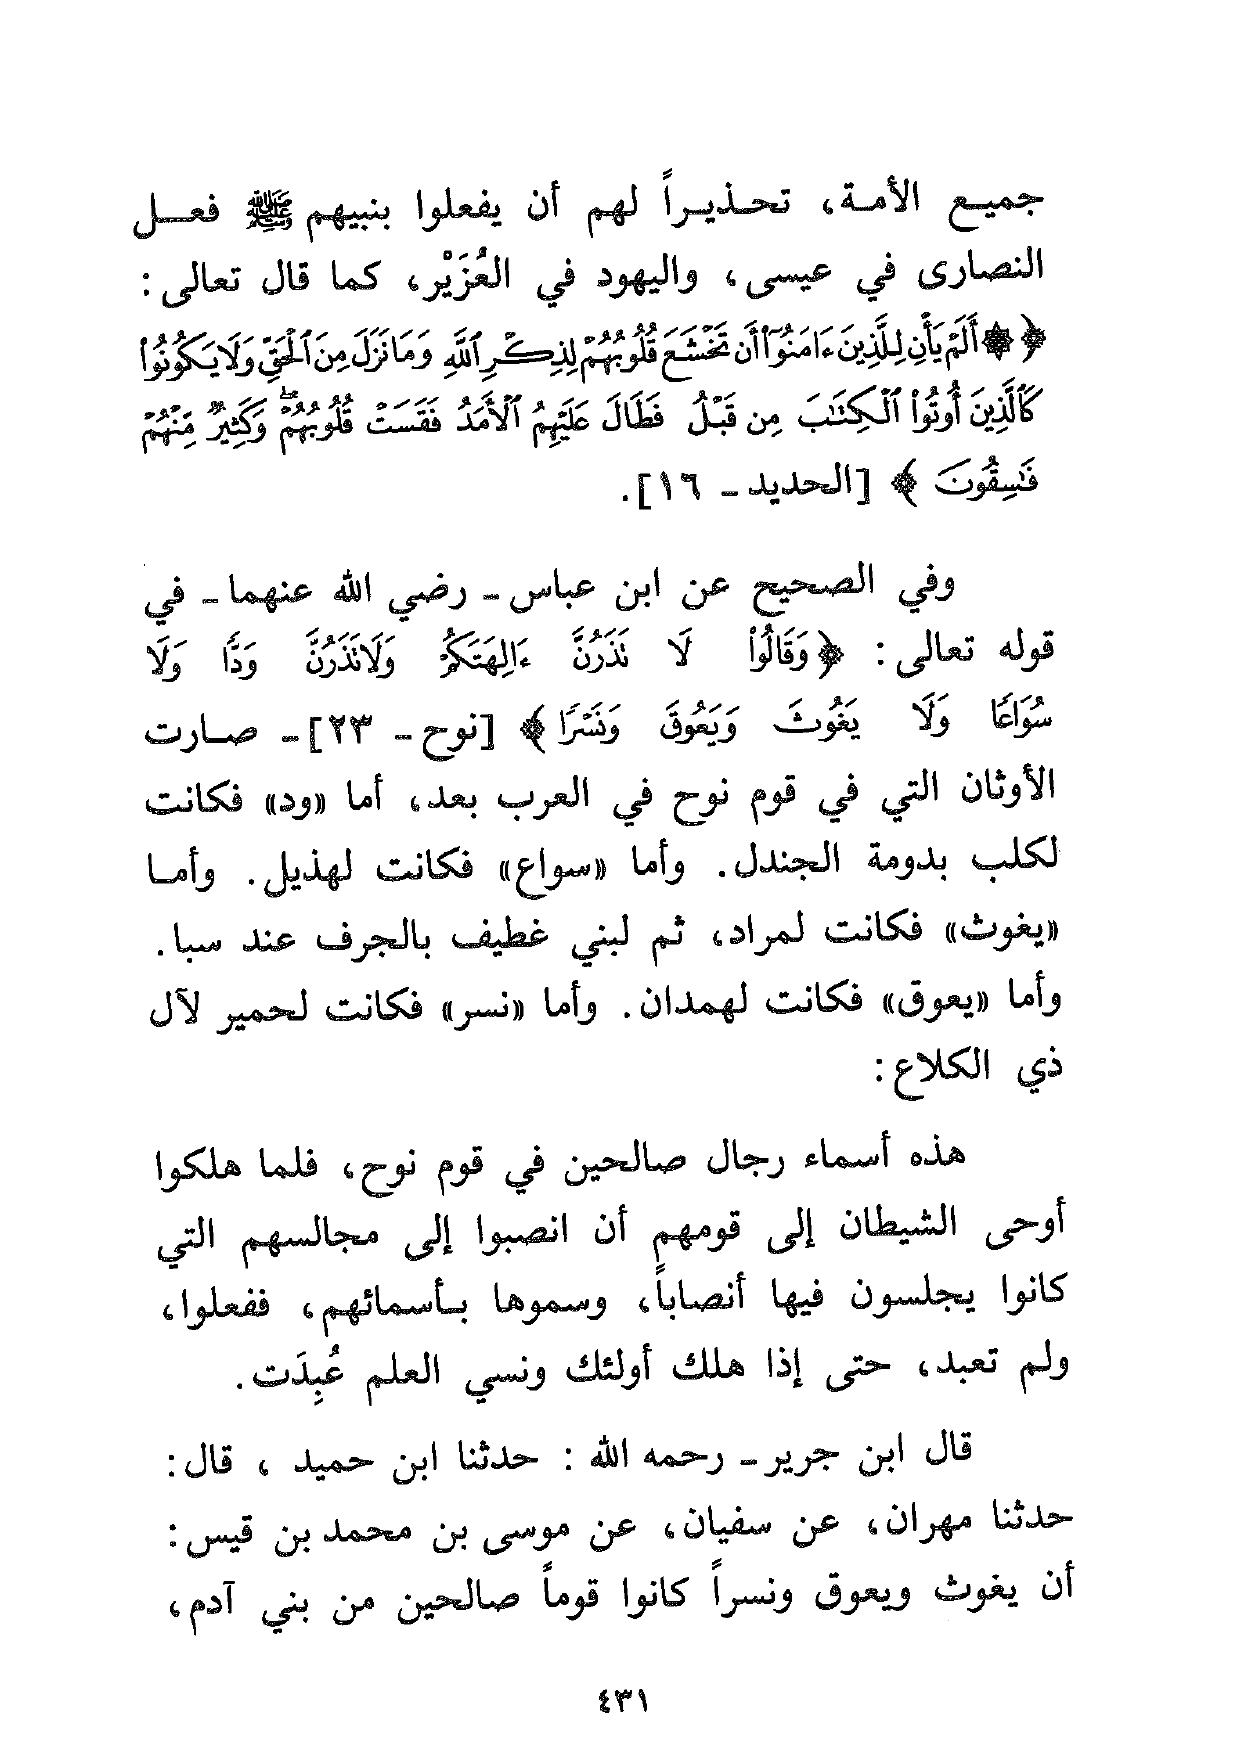 جميع الأمة، تحذيراً لهم أن يفعلوا بنبيهم ﷺ فعل
النصارى في عيسى، واليهود في العُزَيْر، كما قال تعالى:
﴿ ۞ أَلَمْ يَأْنِ لِلَّذِينَ ءَامَنُوٓا۟ أَن تَخْشَعَ قُلُوبُهُمْ لِذِكْرِ ٱللَّهِ وَمَا نَزَلَ مِنَ ٱلْحَقِّ وَلَا يَكُونُوا۟
كَٱلَّذِينَ أُوتُوا۟ ٱلْكِتَٰبَ مِن قَبْلُ فَطَالَ عَلَيْهِمُ ٱلْأَمَدُ فَقَسَتْ قُلُوبُهُمْ ۖ وَكَثِيرٌ مِّنْهُمْ
فَٰسِقُونَ ﴾ [الحديد ـ ١٦].
وفي الصحيح عن ابن عباس ـ رضي الله عنهما ـ في
قوله تعالى: ﴿ وَقَالُوا۟ لَا تَذَرُنَّ ءَالِهَتَكُمْ وَلَا تَذَرُنَّ وَدًّا وَلَا
سُوَاعًا وَلَا يَغُوثَ وَيَعُوقَ وَنَسْرًا ﴾ [نوح ـ ٢٣] ـ صارت
الأوثان التي في قوم نوح في العرب بعد، أما «ود» فكانت
لكلب بدومة الجندل. وأما «سواع» فكانت لهذيل. وأما
«يغوث» فكانت لمراد، ثم لبني غطيف بالجرف عند سبا.
وأما «يعوق» فكانت لهمدان. وأما «نسر» فكانت لحمير لآل
ذي الكلاع:
هذه أسماء رجال صالحين في قوم نوح، فلما هلكوا
أوحى الشيطان إلى قومهم أن انصبوا إلى مجالسهم التي
كانوا يجلسون فيها أنصاباً، وسموها بأسمائهم، ففعلوا،
ولم تعبد، حتى إذا هلك أولئك ونسي العلم عُبِدَت.
قال ابن جرير ـ رحمه الله : حدثنا ابن حميد ، قال:
حدثنا مهران، عن سفيان، عن موسى بن محمد بن قيس:
أن يغوث ويعوق ونسراً كانوا قوماً صالحين من بني آدم،
٤٣١